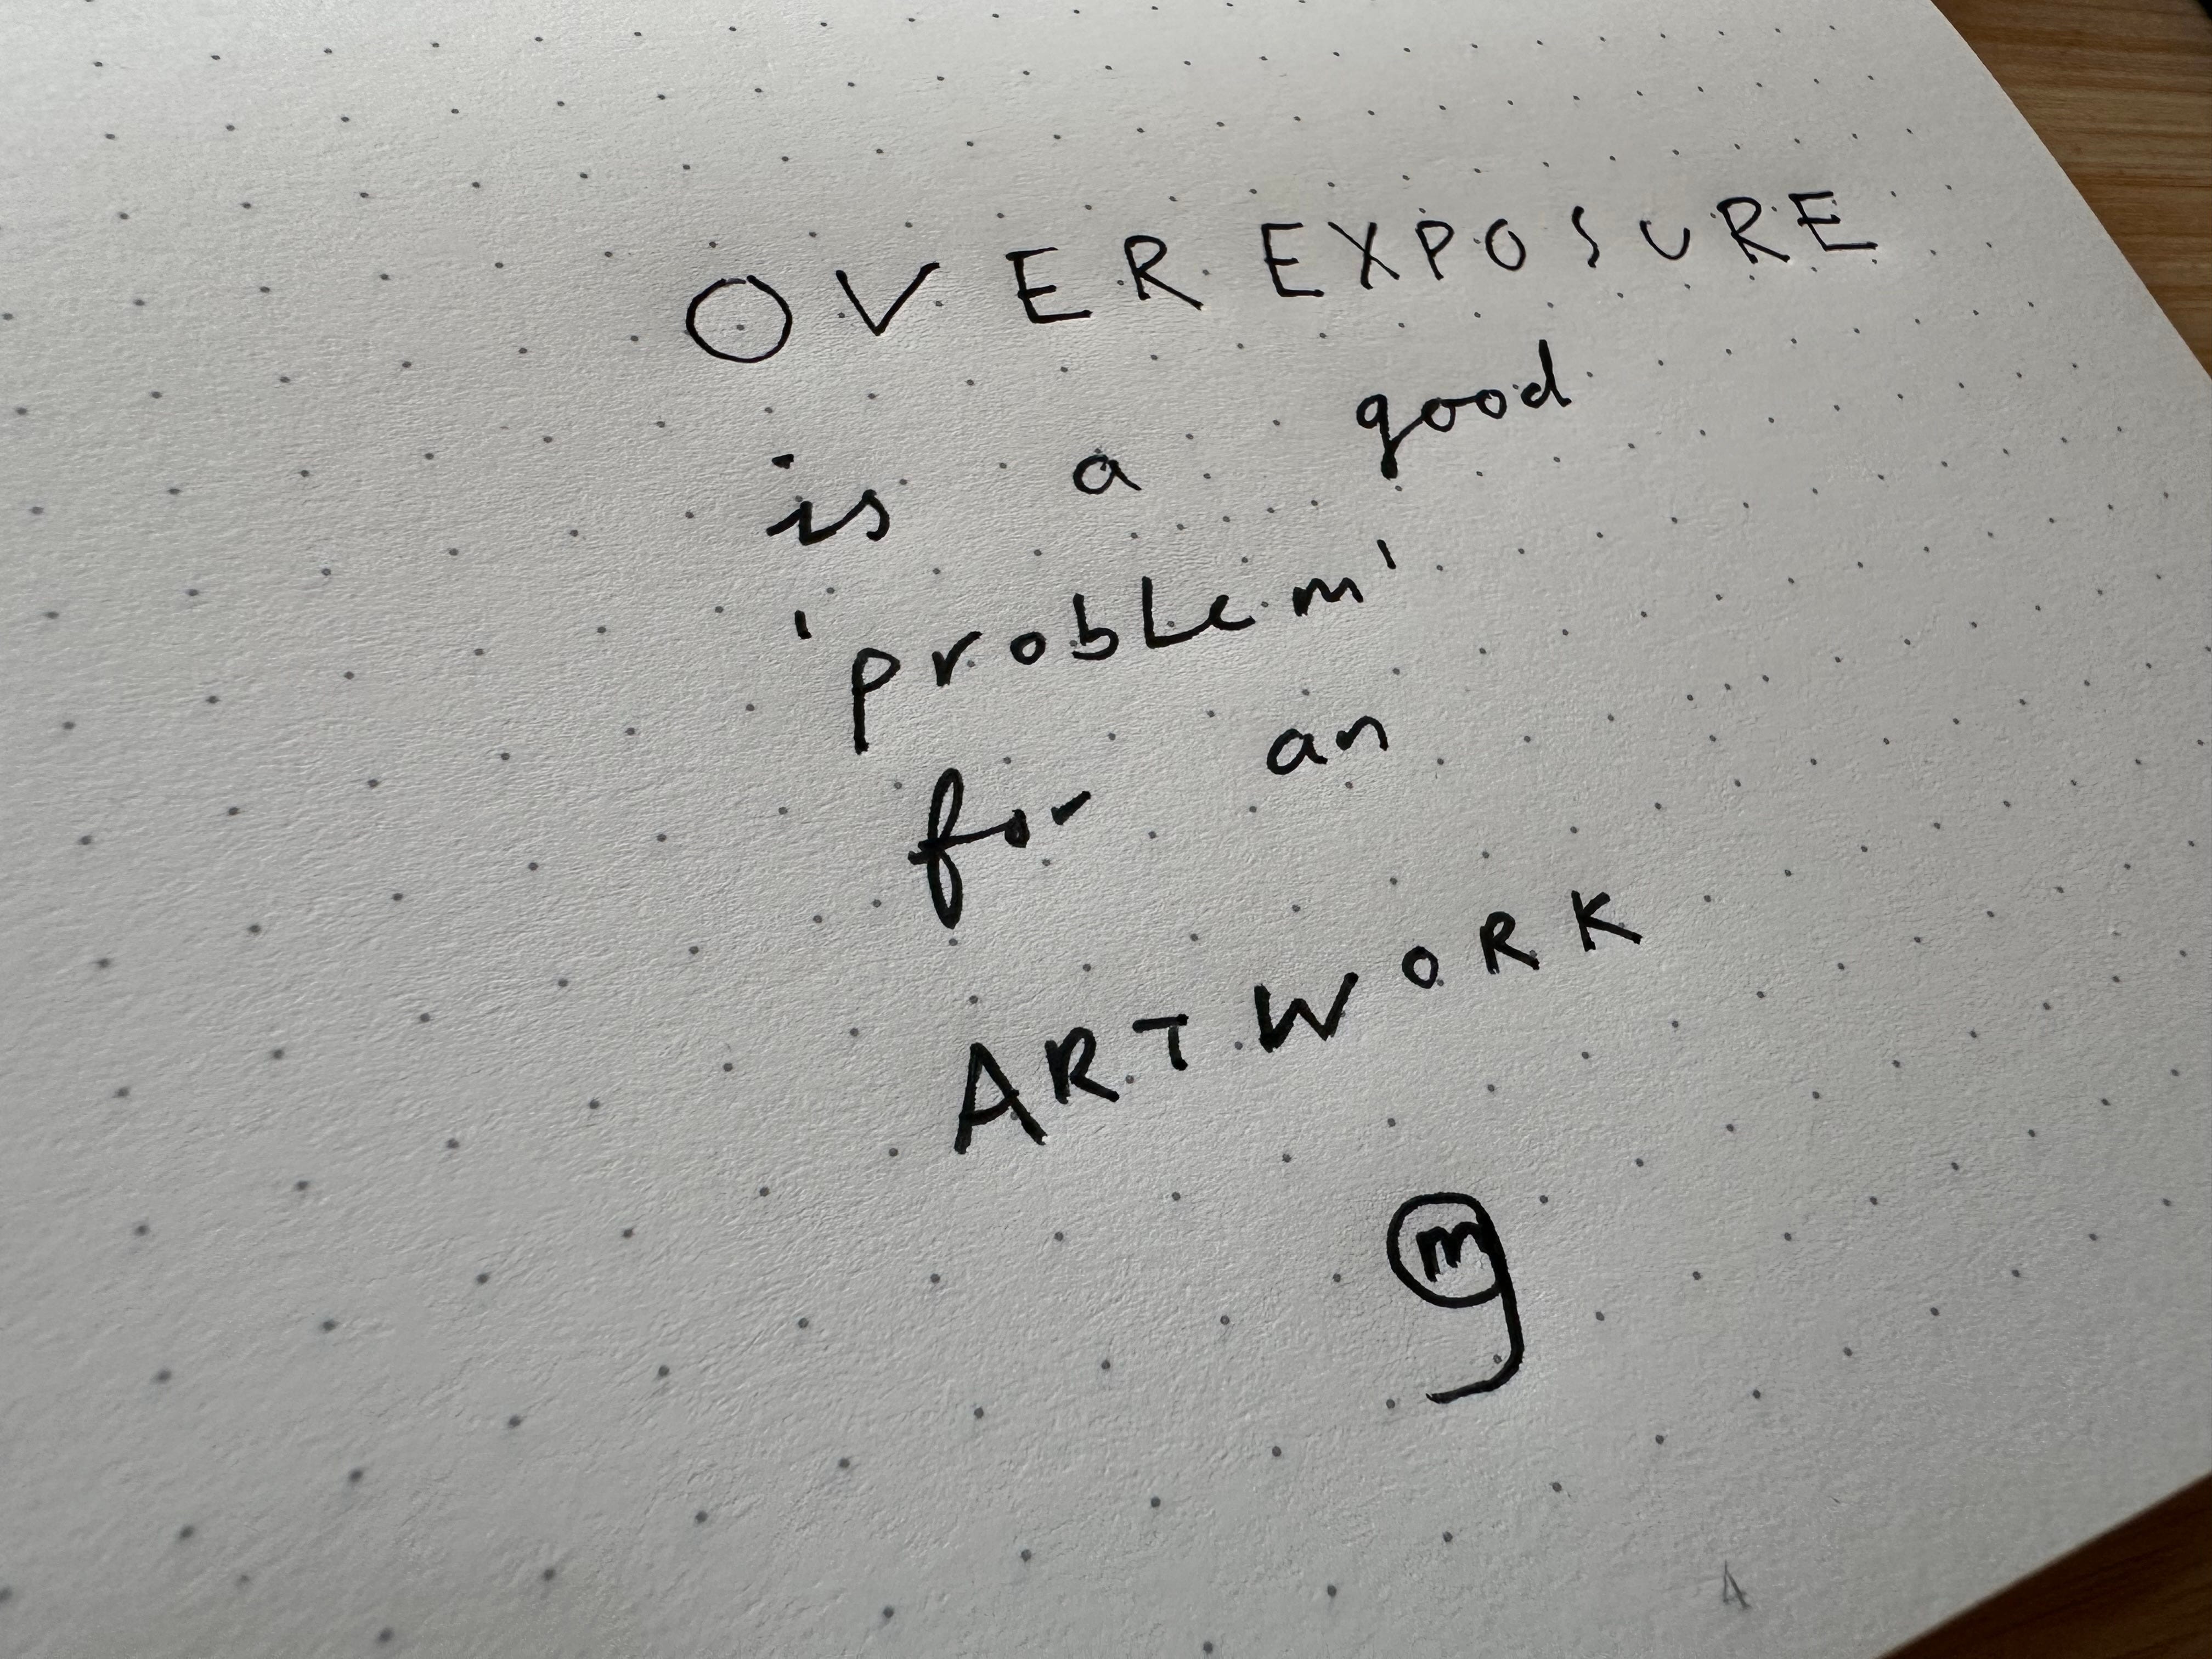 OVEREXPOSURE
is a good
'problem'
for an
ARTWORK
m
4